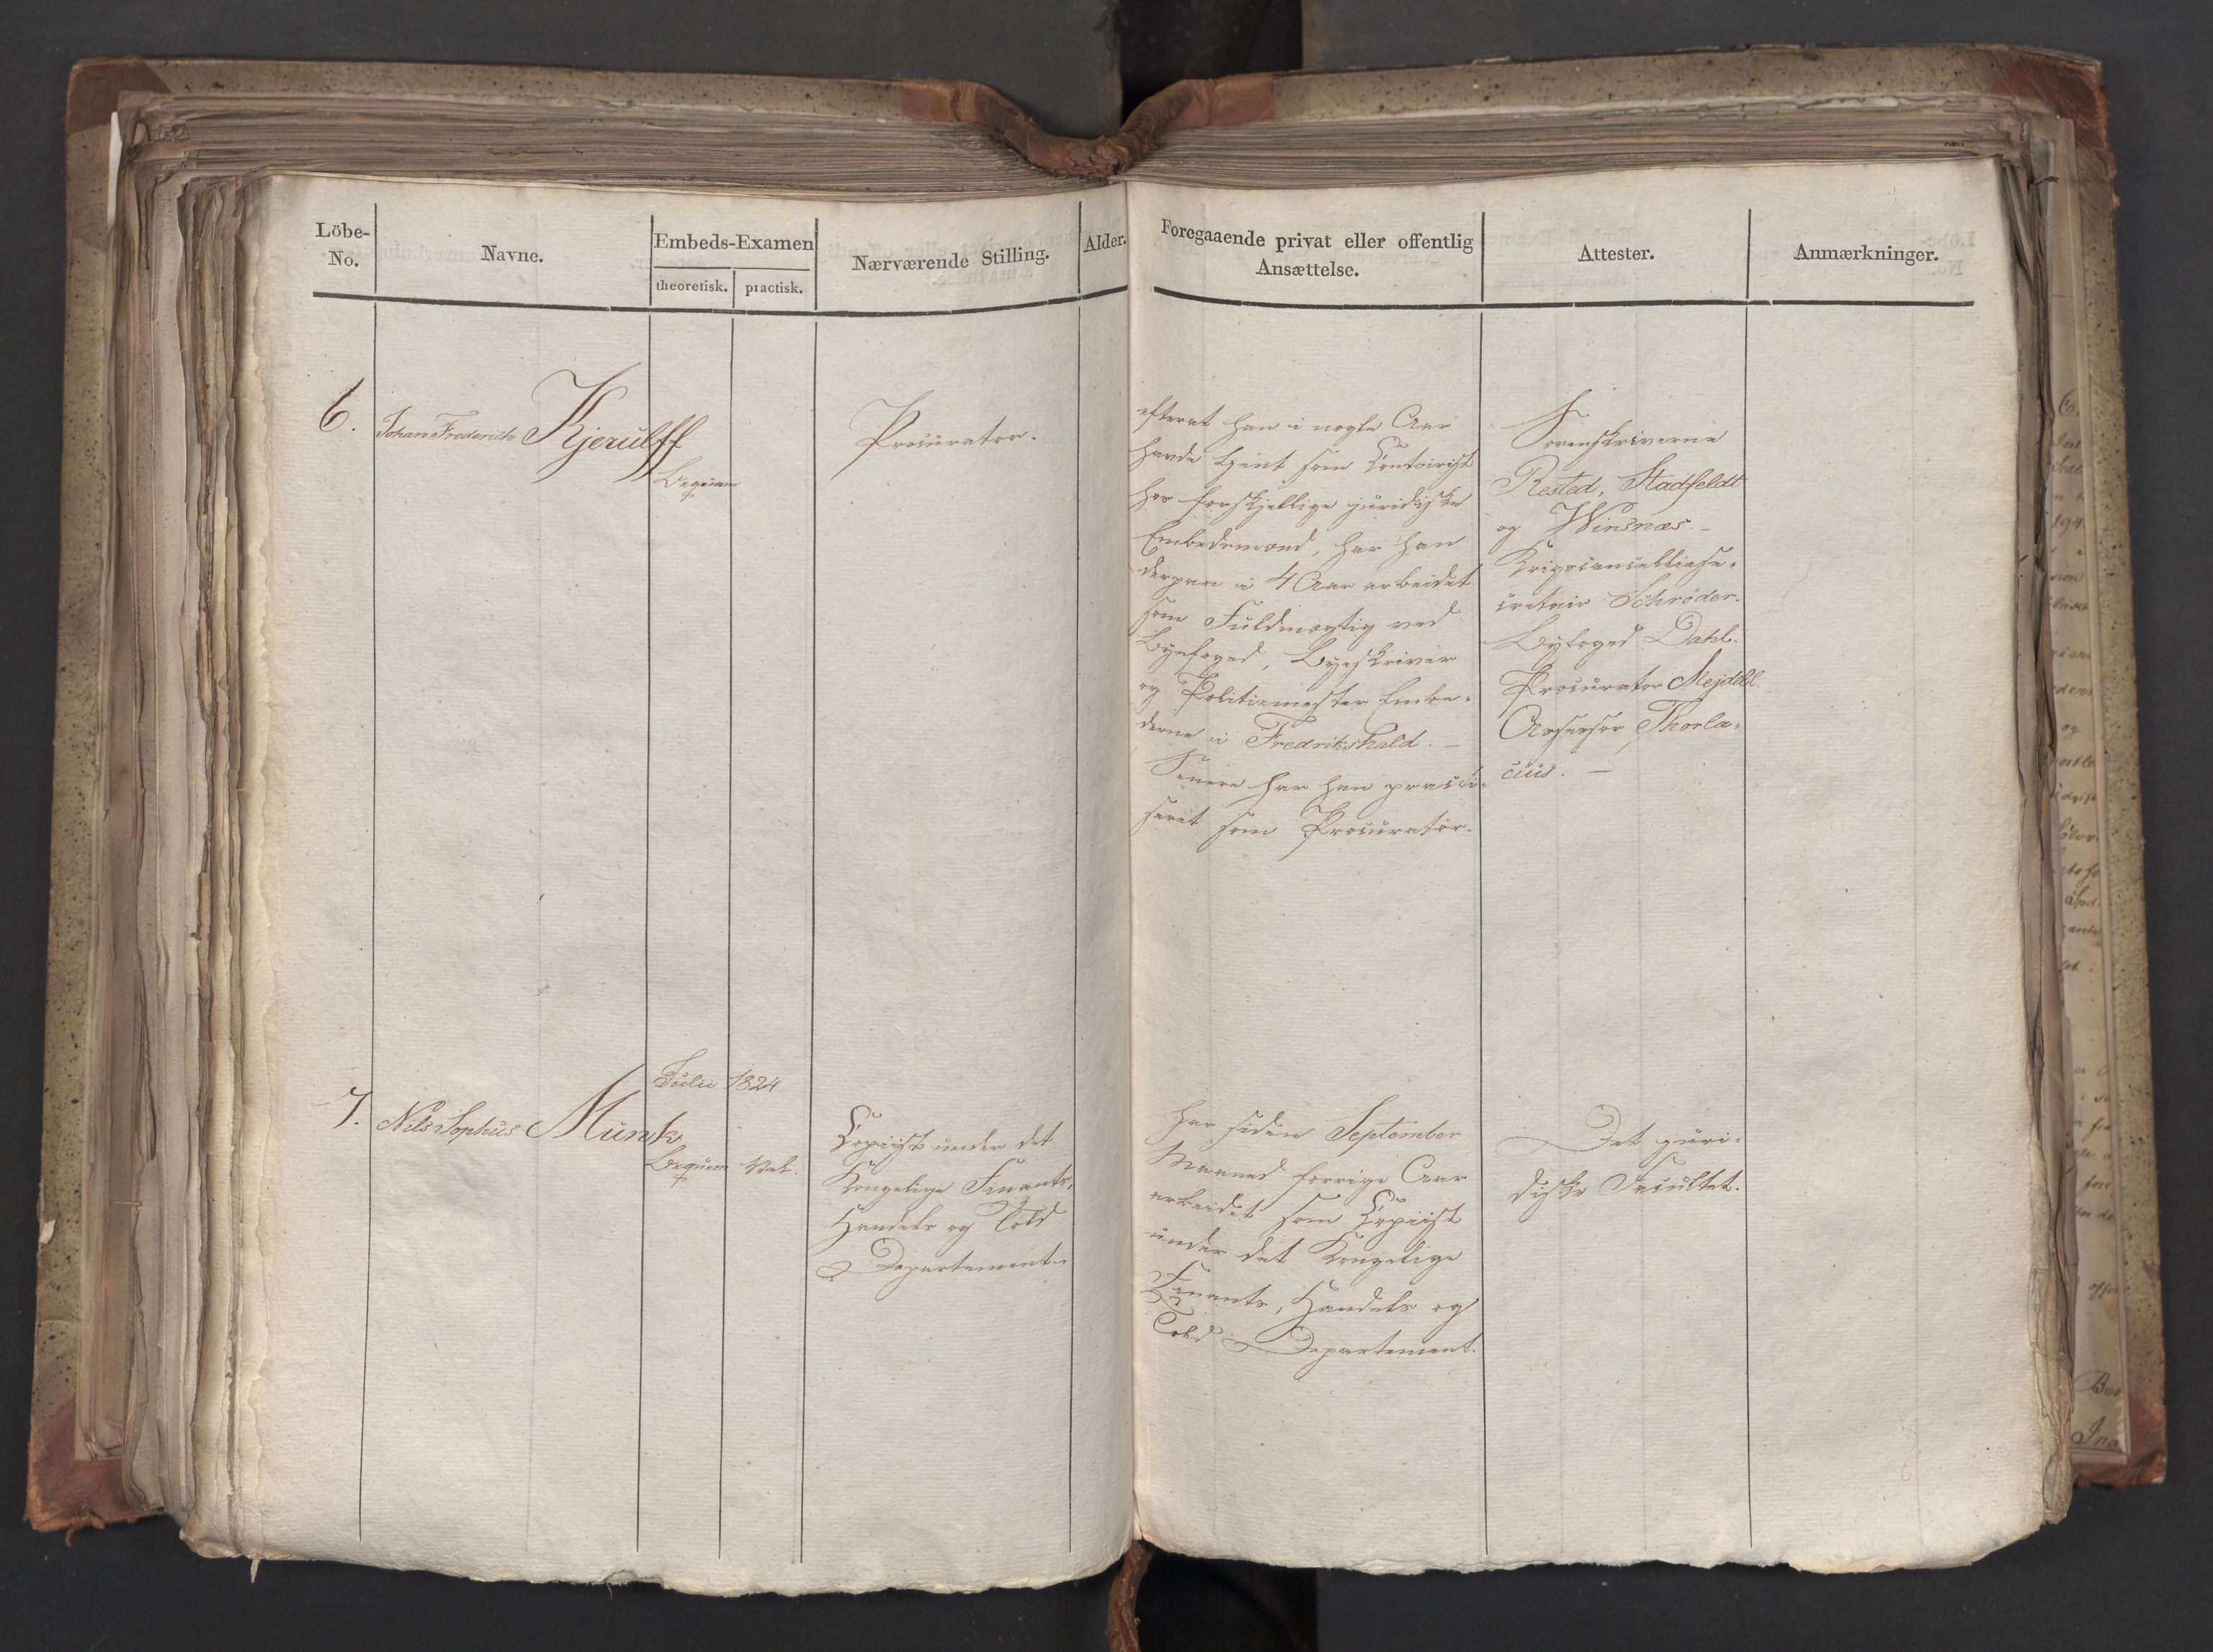 Löbe-
No.
Navne.
Embeds-Examen
theoretisk.
practisk.
Nærværende Stilling.
Alder.
Foregaaende privat eller offentlig
Ansættelse.
Attester.
Anmærkninger.
6.
Johan Frederik Kjerulff
Beqvem
Procurator.
efterat han i nogle Aar
havde tjent som Contoirist
hos forskjellige juridiske
Embedsmænd, har han
derpaa i 4 Aar arbeidet
som Fuldmægtig ved
Byefoged, Byeskriver
og Politiemester Embe-
derne i Fredrikshald. –
Senere har han practi-
seret som Procurator.
Sorenskriverne
Rested, Stadfeldt
og Winsnæs. –
Krigscancelliese-
cretair Schrøder.
Byfoged Dahl.
Procurator Mejdell.
Assessor Thorla-
cius. –
7.
Nils Sophus Munk
Julii 1824
Beqvem
Vel.
Copiist under det
Kongelige Finants,
Handels og Told
Departement.
har siden September
Maaned forrige Aar
arbeidet som Copiist
under det Kongelige
Finants, Handels og
Told Departement.
Det juri-
diske Facultet.